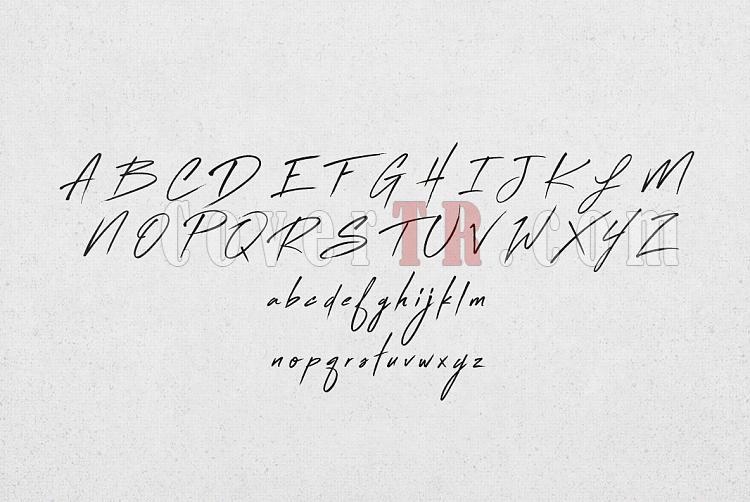 A B C D E F G H I J K L M
N O P Q R S T U V W X Y Z
CoverTR.com
a b c d e f g h i j k l m
n o p q r s t u v w x y z